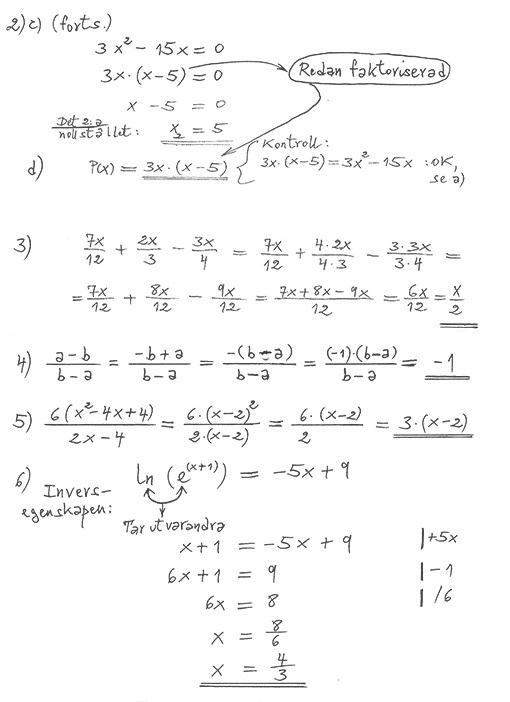 2) c) (forts.)
3x² - 15x = 0
3x·(x-5) = 0 Redan faktoriserad
x - 5 = 0
Det 2:a nollstället: x₂ = 5
d) P(x) = 3x·(x-5) { Kontroll:
3x·(x-5) = 3x² - 15x :OK,
se a)
3) 7x/12 + 2x/3 - 3x/4 = 7x/12 + 4·2x/4·3 - 3·3x/3·4 =
= 7x/12 + 8x/12 - 9x/12 = 7x+8x-9x/12 = 6x/12 = x/2
4) a-b/b-a = -b+a/b-a = -(b-a)/b-a = (-1)·(b-a)/b-a = -1
5) 6(x²-4x+4)/2x-4 = 6·(x-2)²/2·(x-2) = 6·(x-2)/2 = 3·(x-2)
6) ln(e^(x+1)) = -5x + 9
Invers-
egenskapen:
Tar ut varandra
x + 1 = -5x + 9 |+5x
6x + 1 = 9 |-1
6x = 8 | /6
x = 8/6
x = 4/3